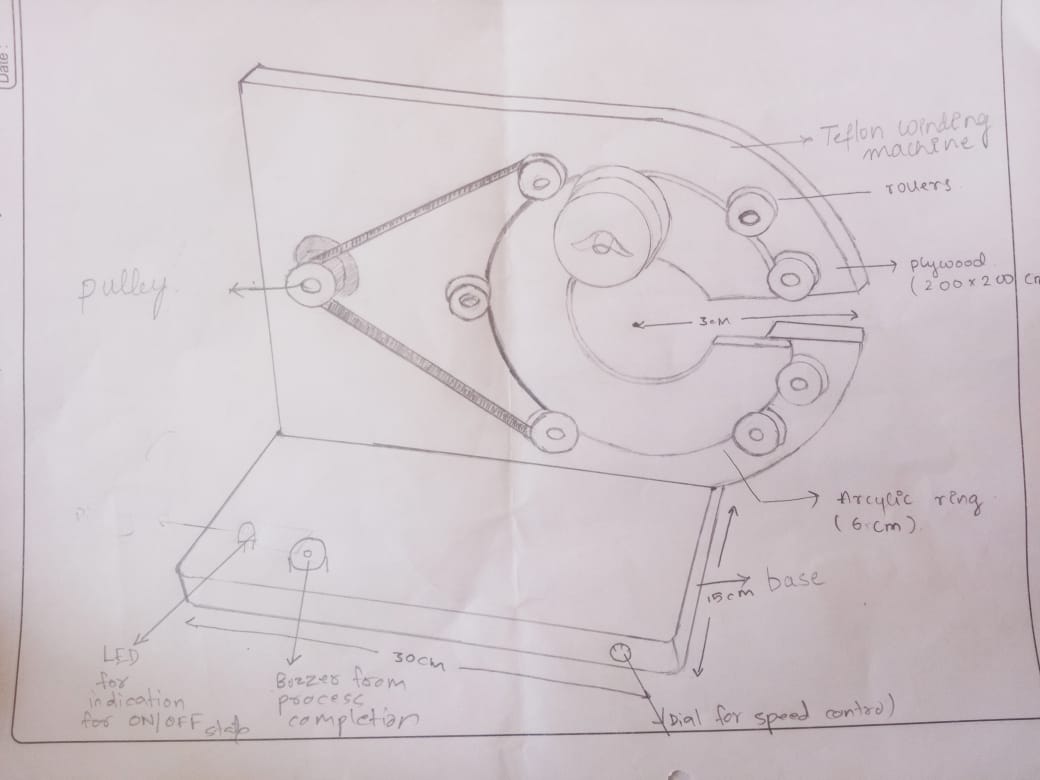 Date:
Teflon winding
machine
rollers
plywood
(200x200 cm
pulley
3cm
Arcylic ring
(6 cm)
base
15cm
30cm
LED
for
indication
for ON/OFF
Buzzer from
process
completion
(Dial for speed control)